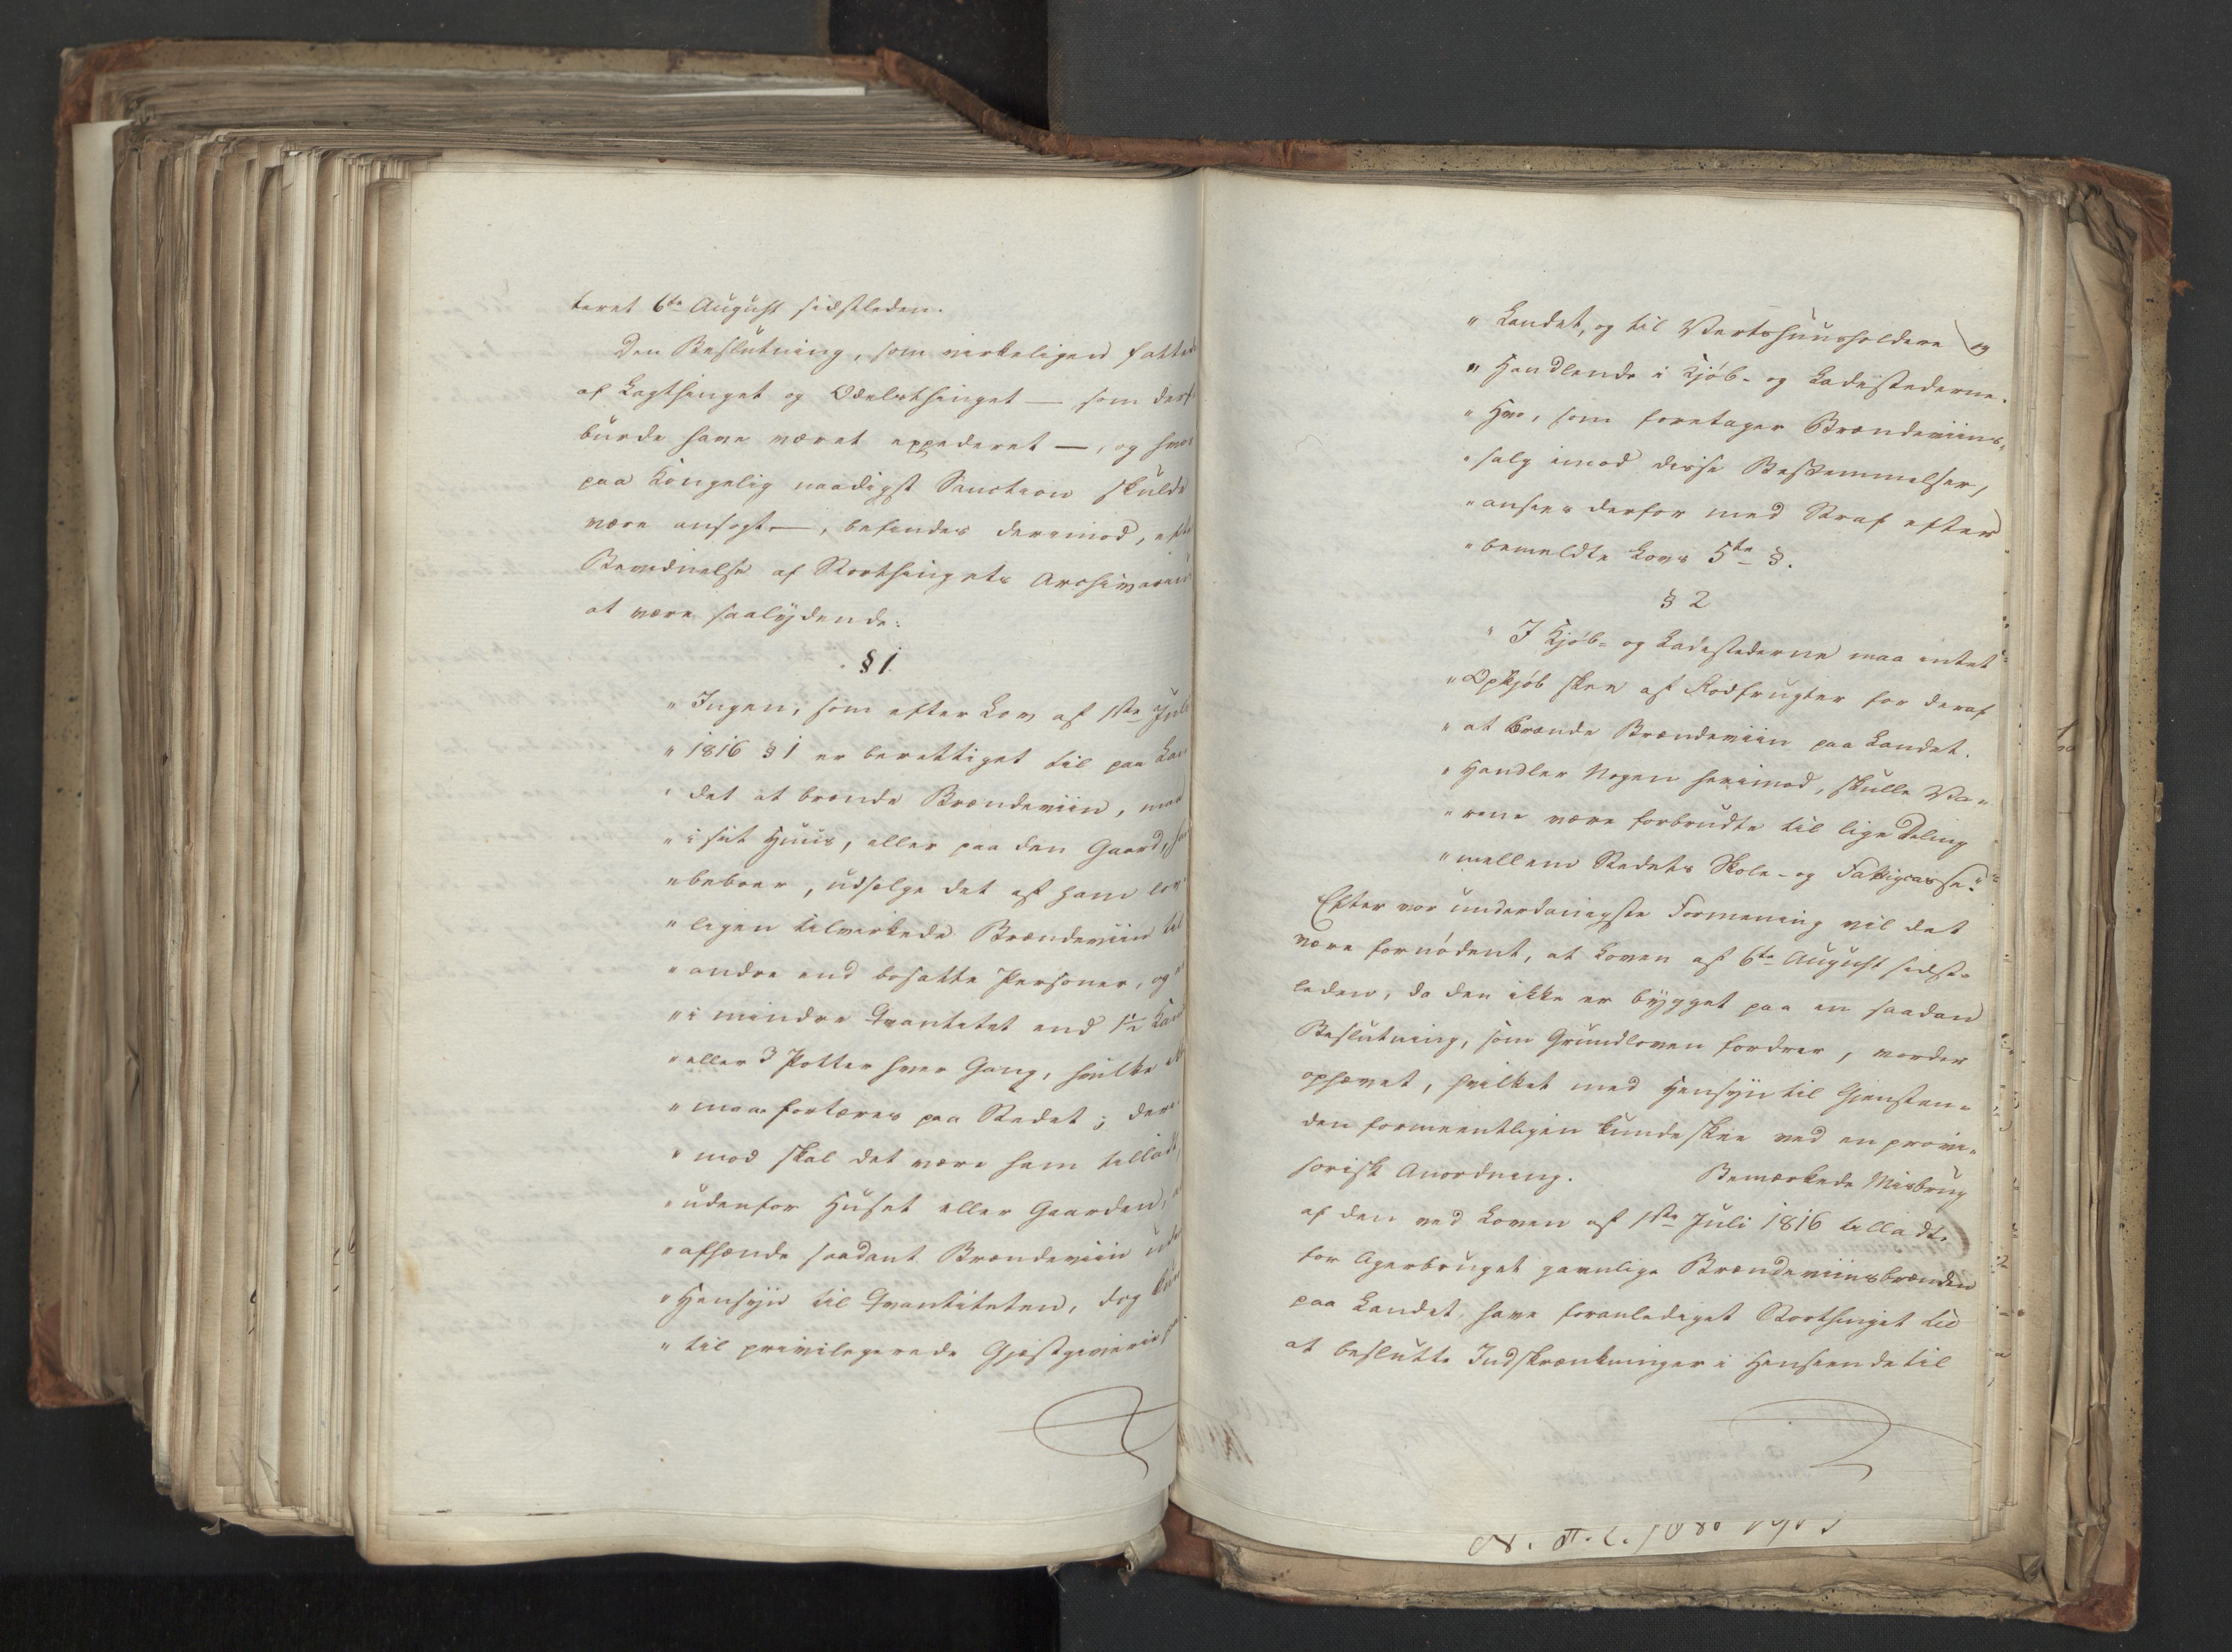 teret 6te August sidstleden.
Den Beslutning, som virkeligen fattet
af Lagthinget og Odelsthinget — som derfor
burde have været expederet —, og hvor
paa Kongelig naadigst Sanction skulde
være ansøgt —, befindes derimod, efter
Bevidnelse af Storthingets Archivarius
at være saalydende:
§ 1.
" Ingen, som efter Lov af 1ste Juli
" 1816 § 1 er berettiget til paa Lan
" det at brænde Brændeviin, maa
" i sit Huus, eller paa den Gaard, han
" beboer, udsælge det af ham lov
" ligen tilvirkede Brændeviin til
" andre end bosatte Personer, og ei
" i mindre Qvantitet end 1½ Kande
" eller 3 Potter hver Gang, hvilke ei
" maae fortæres paa Stedet; der
" mod skal det være ham tilladt,
" udenfor Huset eller Gaarden, at
" afhænde saadant Brændeviin uden
" Hensyn til Qvantiteten, dog kun
" til privilegerede Gjæstgiverier paa
" Landet, og til Vertshuusholdere og
" Handlende i Kjøb- og Ladestederne.
" Hvo, som foretager Brændeviins-
" salg imod disse Bestemmelser,
" ansees derfor med Straf efter
" bemeldte Lovs 5te §.
§ 2
" I Kjøb- og Ladestederne maa intet
" Opkjøb skee af Rodfrugter for deraf
" at brænde Brændeviin paa Landet.
" Handler Nogen herimod, skulle Va-
" rene være forbrudte til lige Deling
" mellem Stedets Skole- og Fattigcasse."
Efter vor underdanigste Formening vil det
være fornødent, at Loven af 6te August sidst-
leden, da den ikke er bygget paa en saadan
Beslutning, som Grundloven fordrer, vorder
ophævet, hvilket med Hensyn til Gjensten-
den formeentligen kunde skee ved en provi-
sorisk Anordning. Bemærkede Misbrug
af den ved Loven af 1ste Juli 1816 tilladte
for Agerbruget gavnlige Brændeviinsbrænden
paa Landet, have foranlediget Storthinget til
at beslutte Indskrænkninger i Henseende til